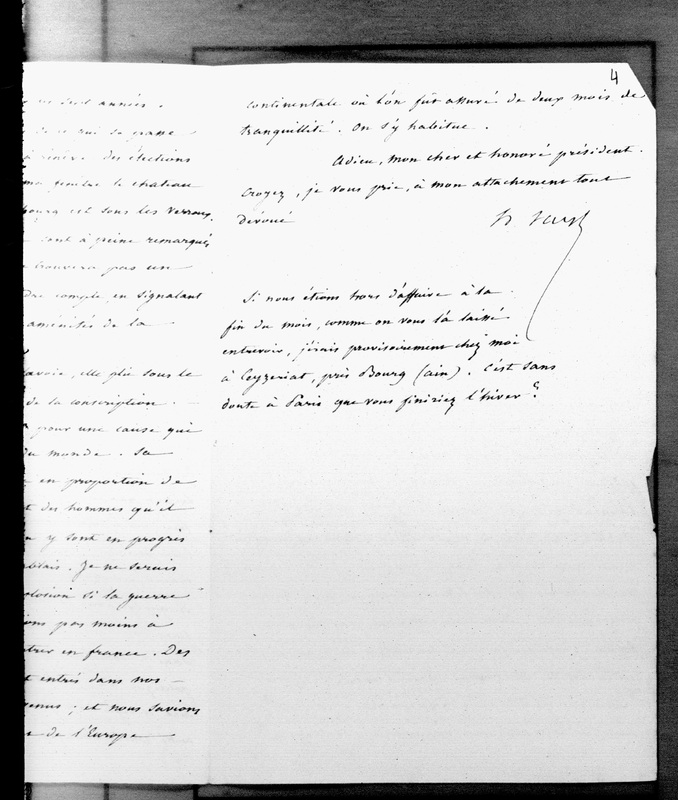 4
six années.
se passe
des élections
le chateau
est sous les verroux,
sont à peine remarqués
trouvera pas un
compte, en signalant
aménités de la
elle plie sous le
de la conscription.
pour une cause qui
du monde. Sa
en proportion de
des hommes qu'il
y sont en progrès
Je ne serais
si la guerre
pas moins à
en france. Des
entrés dans nos
; et nous savions
de l'Europe
continentale où l'on fût assuré de deux mois de
tranquillité. On s'y habitue.
Adieu, mon cher et honoré président.
Croyez, je vous prie, à mon attachement tout
dévoué
Si nous étions hors d'affaire à la
fin du mois, comme on vous l'a laissé
entrevoir, j'irais provisoirement chez moi
à Ceyzeriat, près Bourg (ain). C'est sans
doute à Paris que vous finiriez l'hiver ?